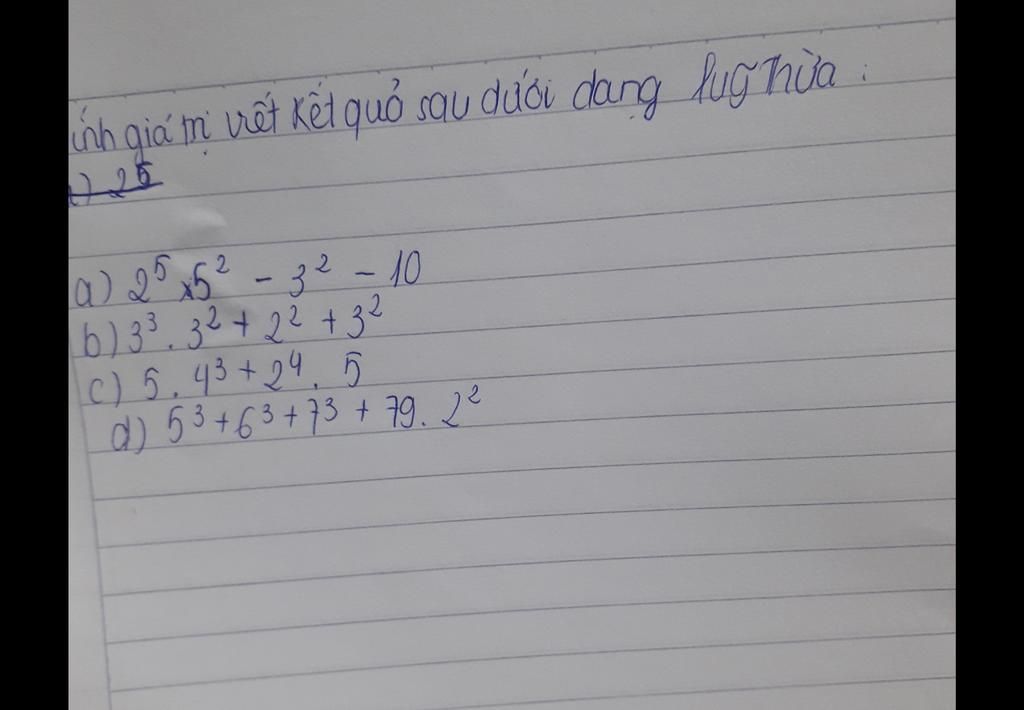 ính giá trị viết kết quả sau dưới dạng luỹ thừa :
a) 2⁵ x 5² - 3² - 10
b) 3³ . 3² + 2² + 3²
c) 5 . 4³ + 2⁴ . 5
d) 5³ + 6³ + 7³ + 79 . 2²